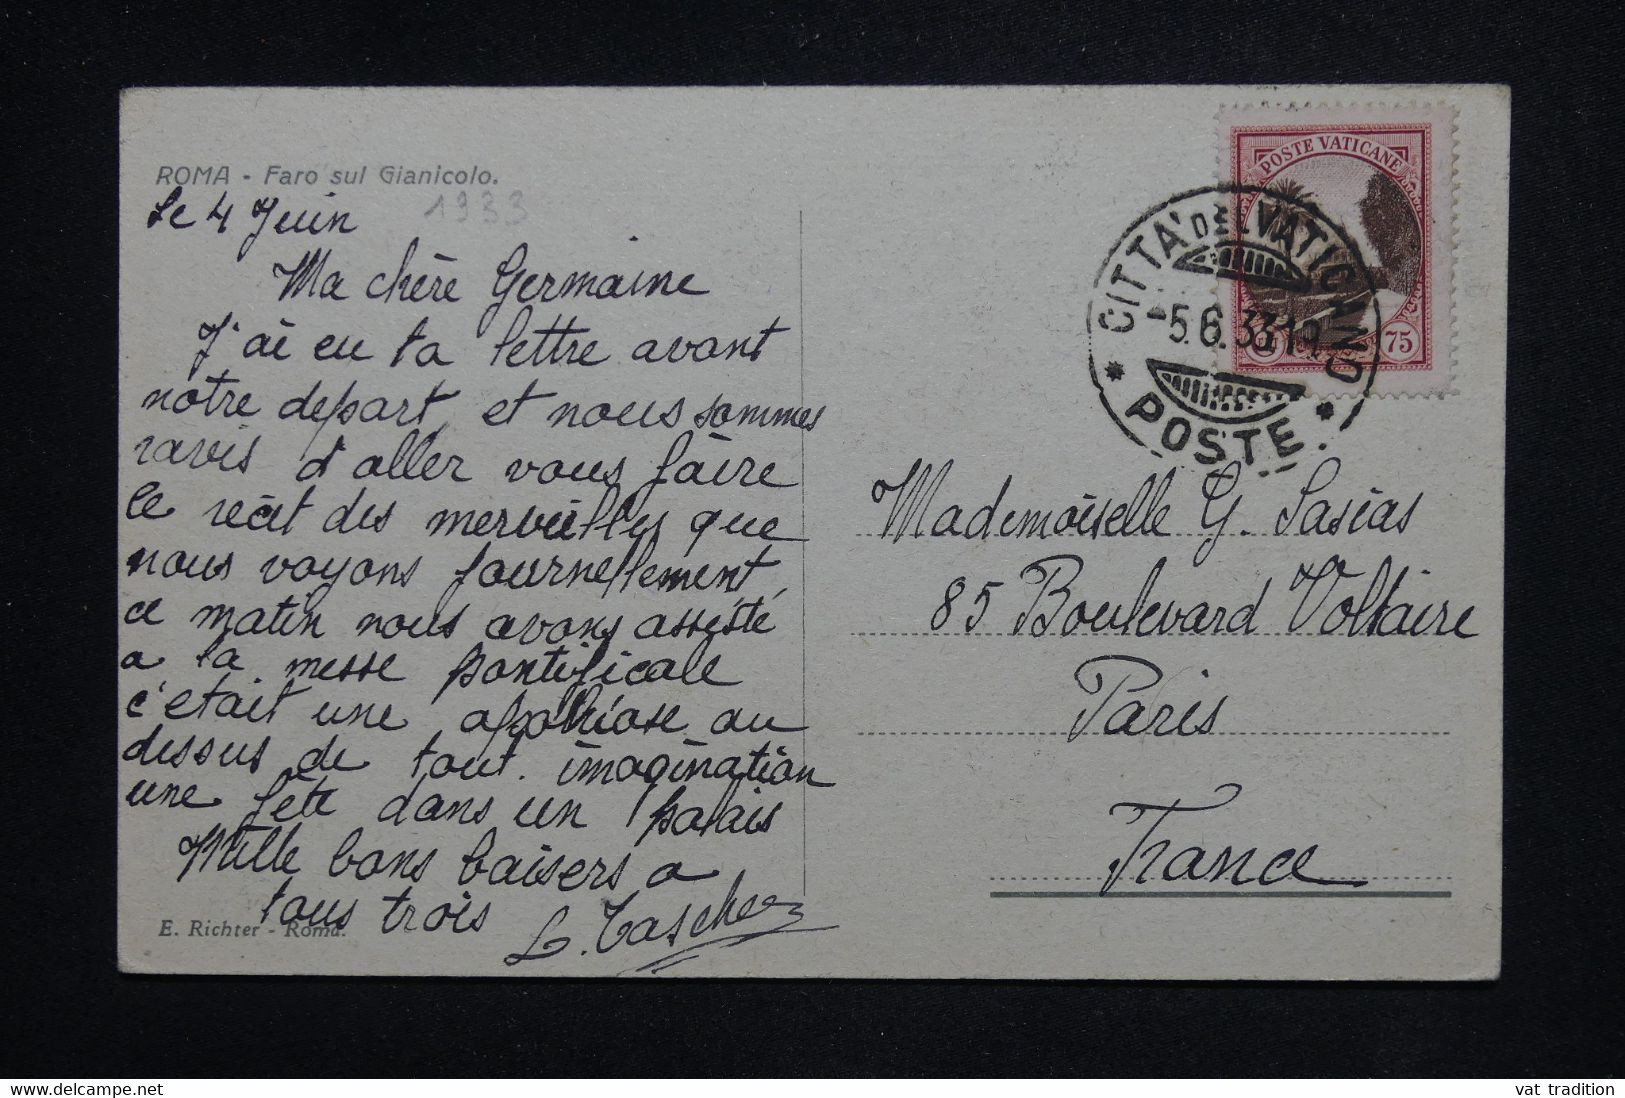 ROMA - Faro sul Gianicolo.
1933
Le 4 Juin
Ma chère Germaine
J'ai eu ta lettre avant
notre depart, et nous sommes
ravis d'aller vous faire
le récit des merveilles que
nous voyons journellement,
ce matin nous avons assisté
a la messe pontificale
c'etait une apothéose au
dessus de tout imagination
une fête dans un palais
Mille bons baisers a
tous trois
E. Richter - Roma.
POSTE VATICANE
75
CITTA' DEL VATICANO
-5.6.33.19
POSTE
Mademoiselle G. Sasias
85 Boulevard Voltaire
Paris
France
www.delcampe.net
vat tradition